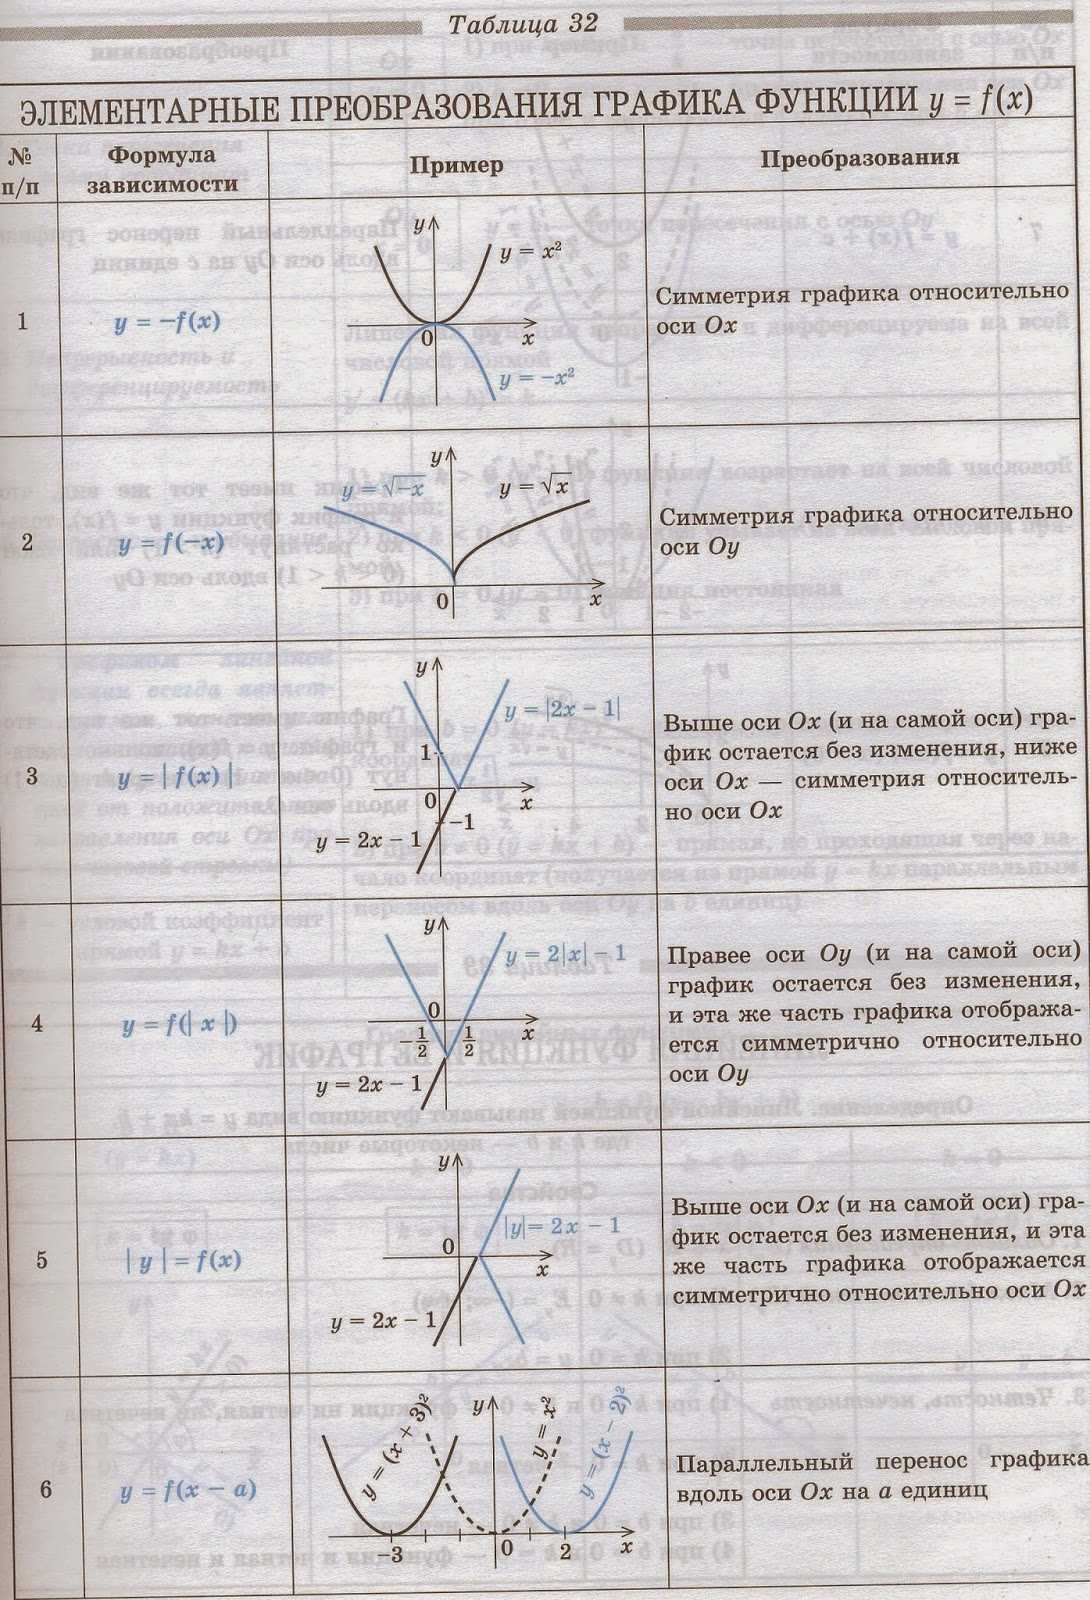 Таблица 32
ЭЛЕМЕНТАРНЫЕ ПРЕОБРАЗОВАНИЯ ГРАФИКА ФУНКЦИИ y = f(x)
№ п/п
Формула зависимости
Пример
Преобразования
1
y = −f(x)
y
y = x²
0
x
y = −x²
Симметрия графика относительно
оси Ox
2
y = f(−x)
y
y = √−x
y = √x
0
x
Симметрия графика относительно
оси Oy
3
y = | f(x) |
y
y = |2x − 1|
1
0
x
−1
y = 2x − 1
Выше оси Ox (и на самой оси) гра-
фик остается без изменения, ниже
оси Ox — симметрия относитель-
но оси Ox
4
y = f(| x |)
y
y = 2|x| − 1
0
x
−1/2
1/2
y = 2x − 1
Правее оси Oy (и на самой оси)
график остается без изменения,
и эта же часть графика отобража-
ется симметрично относительно
оси Oy
5
| y | = f(x)
y
|y| = 2x − 1
0
x
y = 2x − 1
Выше оси Ox (и на самой оси) гра-
фик остается без изменения, и эта
же часть графика отображается
симметрично относительно оси Ox
6
y = f(x − a)
y = (x + 3)²
y
y = x²
y = (x − 2)²
−3
0
2
x
Параллельный перенос графика
вдоль оси Ox на a единиц